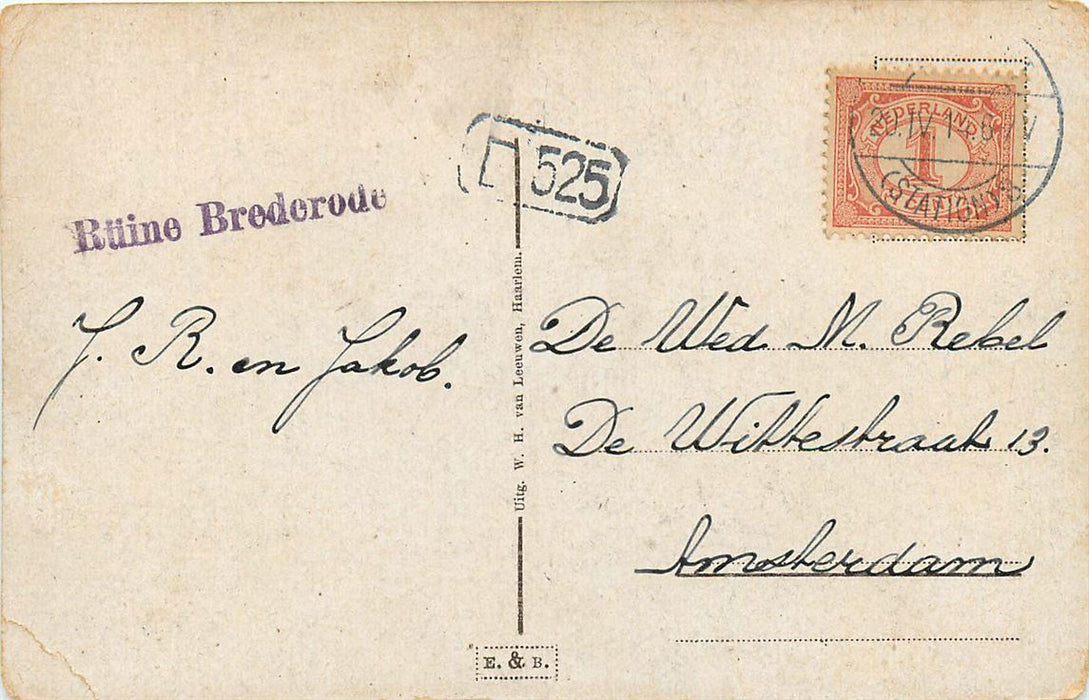 Rüine Brederode
J. R. en Jakob.
525
Uitg. W. H. van Leeuwen, Haarlem.
E. & B.
NEDERLAND
1
STATION
De Wed M. Rebel
De Wittestraat 13.
Amsterdam